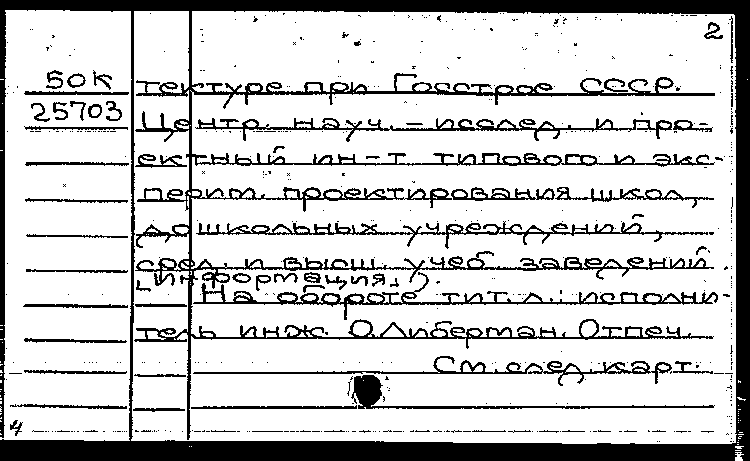 2
50К
25703
тектуре при Госстрое СССР.
Центр. науч.-исслед. и про-
ектный ин-т типового и экс-
перим. проектирования школ,
дошкольных учреждений,
сред. и высш. учеб. заведений.
[Информация.]).
На обороте тит. л.: исполни-
тель инж. О.Либерман. Отпеч.
См. след. карт.
4